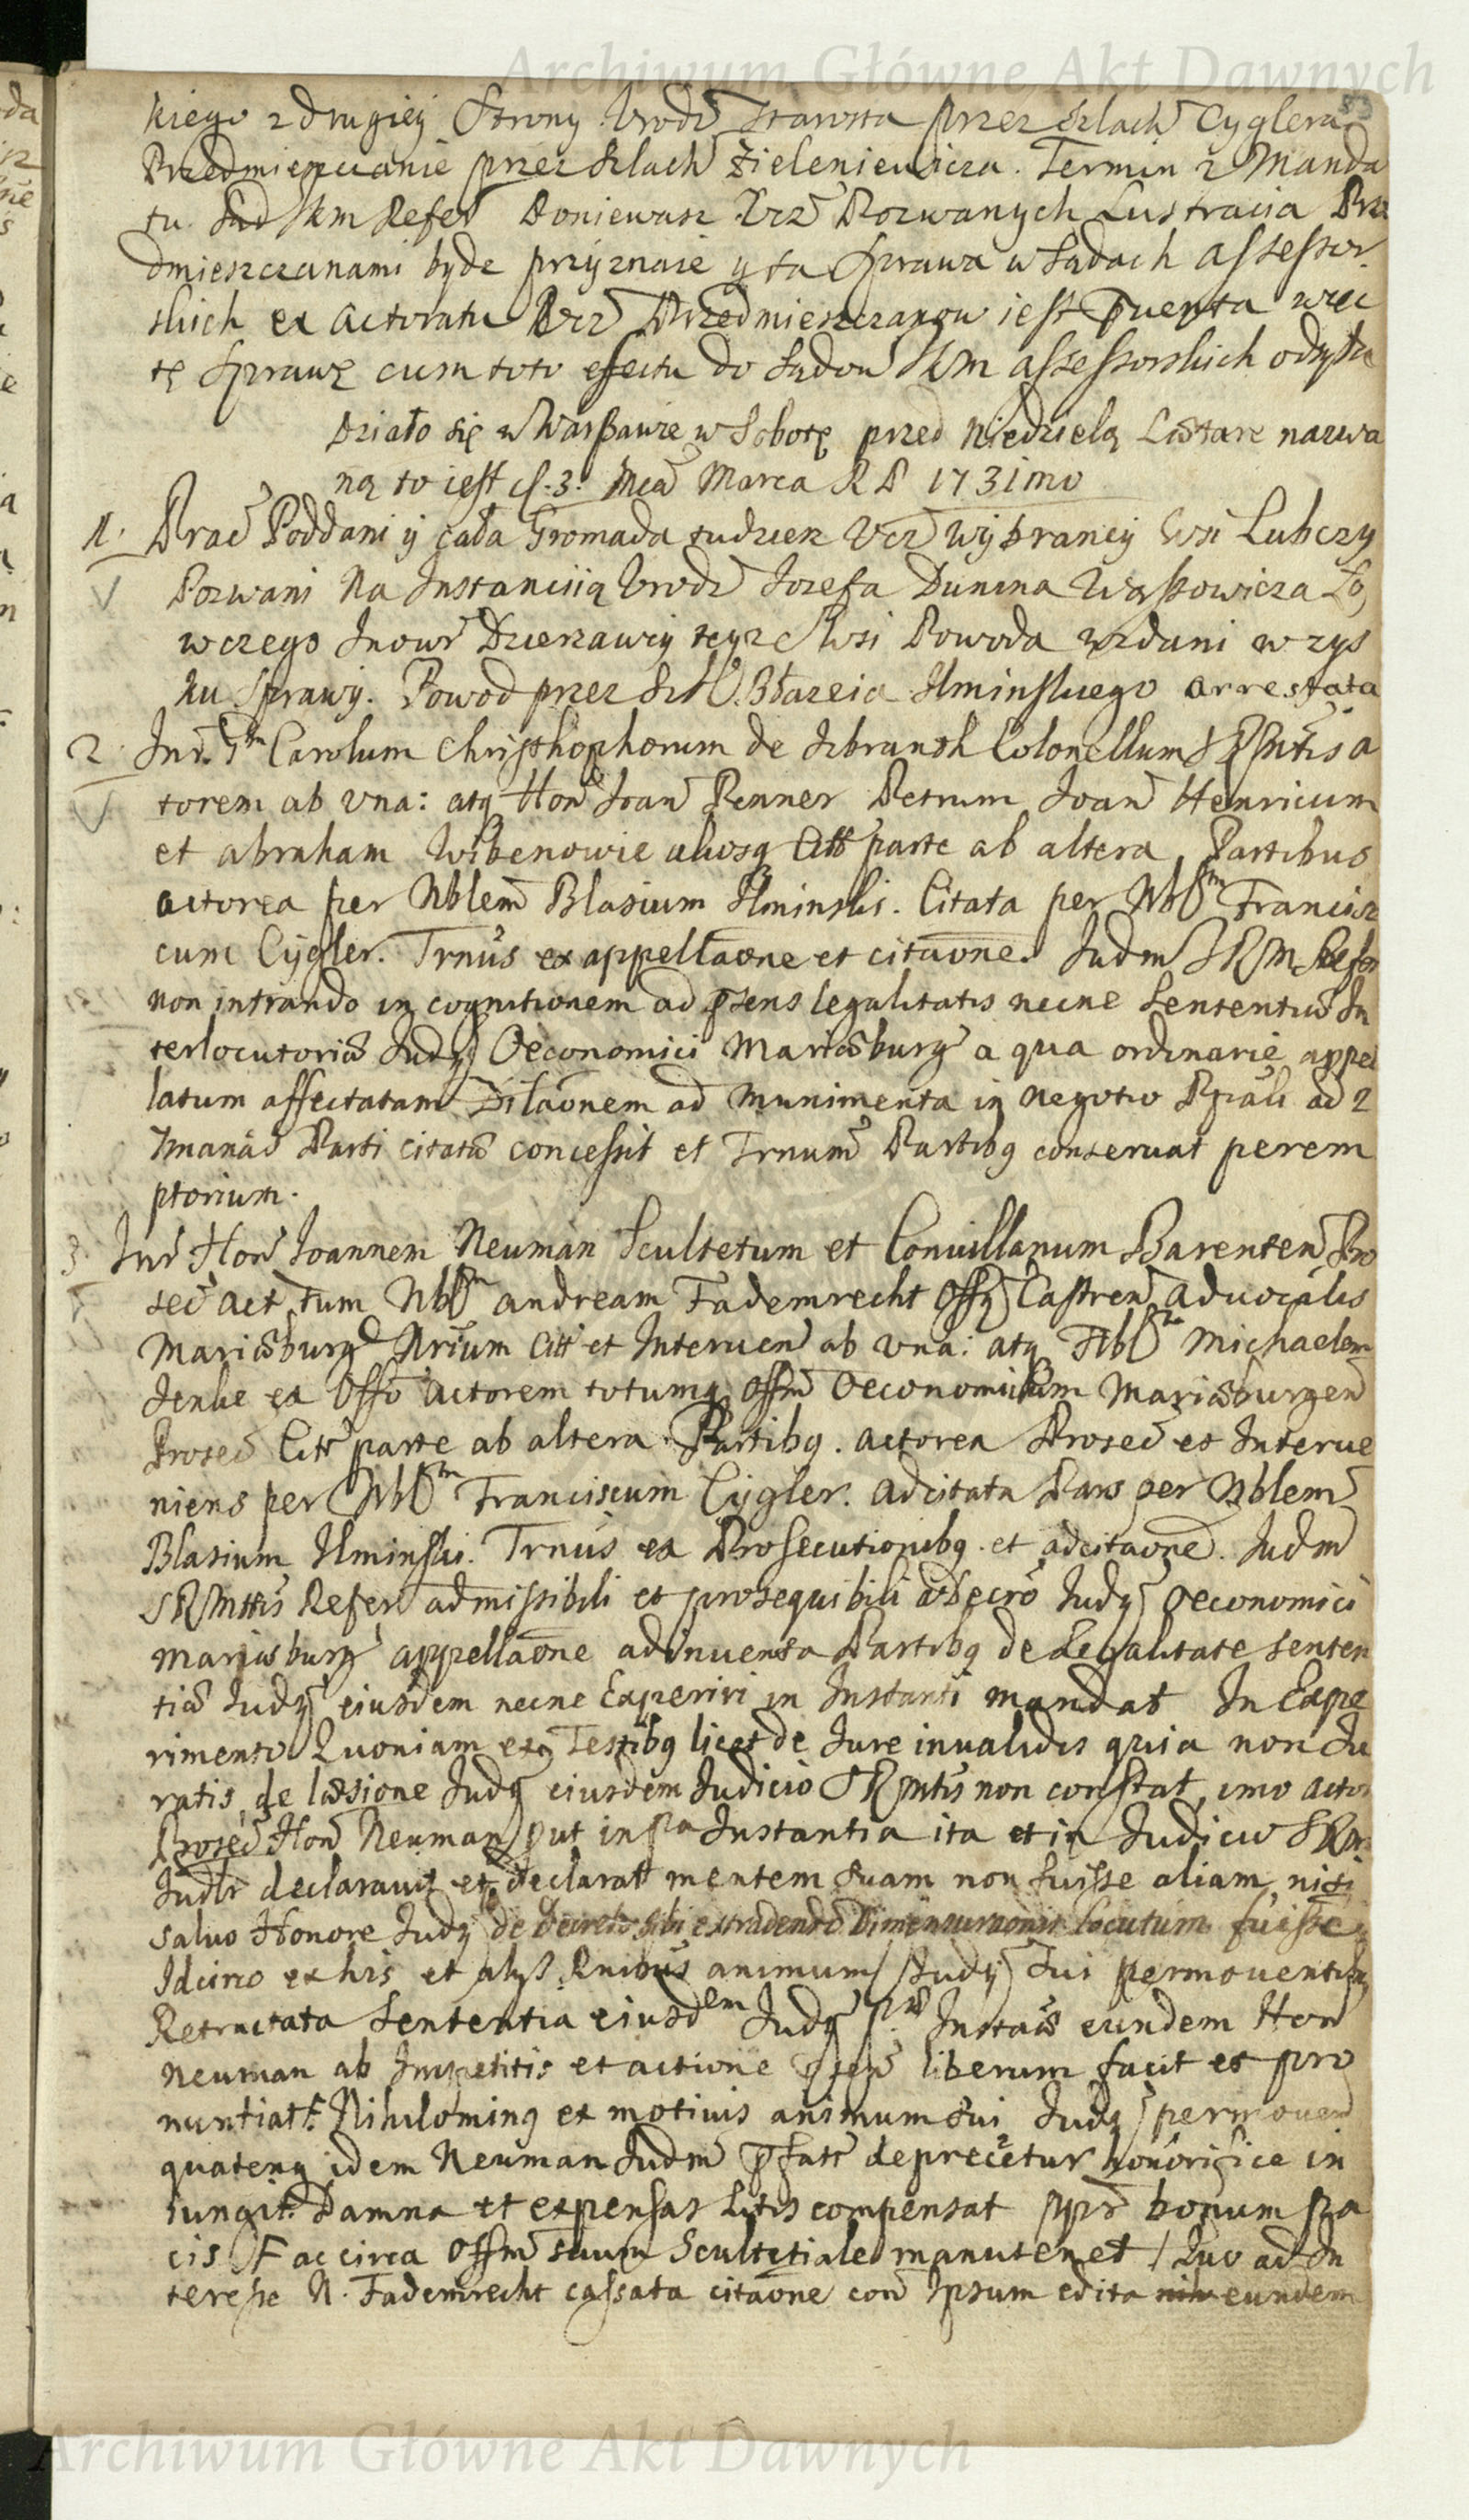 Archiwum Główne Akt Dawnych
53
kiego z drugiey Strony Urodz Starosta przez szlach Cyglera
Przedmieszczanie przez szlach Zieleniewicza. Termin z Manda
tu. Sąd JKM Refer Poniewasz Ucz Pozwanych Lustracia Prze
dmieszczanami bydz przyznaie y ta Sprawa w Sądach assessor
skich ex actoratu Ucz Przedmieszczanow iest więc
tę Sprawę cum toto efectu do Sądow JKM assessorskich odsyła
Działo się w Warszawie w Sobotę przed Niedzielą Laetare nazwa
ną to iest d. 3. Mca Marca RP 1731mo
1. Prac Poddani y cała Gromada tudziez Ucz Wybrancy Wsi Lubczy
Pozwani Na Instanciią Urodz Jozefa Dunina Wąsowicza Ło
wczego Inowr Dzierzawcy teyze Wsi Powoda wzdani w zys
ku Sprawy. Powod przez Szl. Błazeia Ilminskiego arrestata
2. Inr. Gm Carolum Christhophorum de Isbrandh Colonellum SRMttis a
torem ab una: atq Hon Joan Penner Petrum Joan Henricum
et abraham Wibenowie aliosq Citt parte ab altera Partibus
actorea per Nblem Blasium Ilminski. Citata per Nblm Francis
cum Cygler. Trnus ex appellaone et citaone. Judm SRM Refer
non intrando in cognitionem ad psens legalitatis necne Sententiae In
terlocutoriae Judy Oeconomici Mariaeburg a qua ordinarie appel
latum affectatam Dilaonem ad munimenta in negotio Pnali ad 2
7manas Parti citatae concessit et Trnum Partibq conservat perem
ptorium.
3 Inr Hon Joannem Neuman Scultetum et Convillanum Barenten Pro
sec act tum Nblm andream Fademrecht Offy Castren advocalis
Mariaeburg Nrium Citt et Interven ab una: atq Nblm Michaelem
Jenke ex Offo actorem totumq Offm Oeconomicum Mariaeburgen
Prosec Citt parte ab altera Partibq. actorea Prosec et Interve
niens per Nblm Franciscum Cygler. adcitata Pars per Nblem
Blasium Ilminski. Trnus ex Prosecutionibq. et adcitaone. Judm
SRMttis Refer admissibili et prosequibili a Decro Judy Oeconomici
Mariaeburg appellaone adinventa Partibq de Legalitate senten
tiae Judy eiusdem necne Experiri in Instanti mandat In Expe
rimento Quoniam ex Testibq licet de Jure invalidis quia non Ju
ratis, de laesione Judy eiusdem Judicio SRMttis non constat, imo actor
Prosec Hon Neuman put in pa Instantia ita et in Judicio SRM
Judlr declaravit et declarat mentem suam non fuisse aliam, nisi
salvo Honore Judy de Decreto sibi extradendo Dimensuraonis locutum fuisse
Idcirco ex his et alys Rnibus animum Judy sui permoventibq
Retractata Sententia eiusdem Judy pae Instaae eundem Hon
Neuman ab Impetitis et actione psen liberum facit et pro
nuntiat. Nihilominq ex motivis animum sui Judy permoven
quatenq idem Neuman Judm pfatt deprecetur honorifice in
iungit. Damna et expensas Litis compensat ppr bonum pa
cis. Hac circa Offm suum Scultetiale manutenet / Quo ad In
teresse N. Fademrecht cassata citaone con Ipsum edita eundem
Archiwum Główne Akt Dawnych